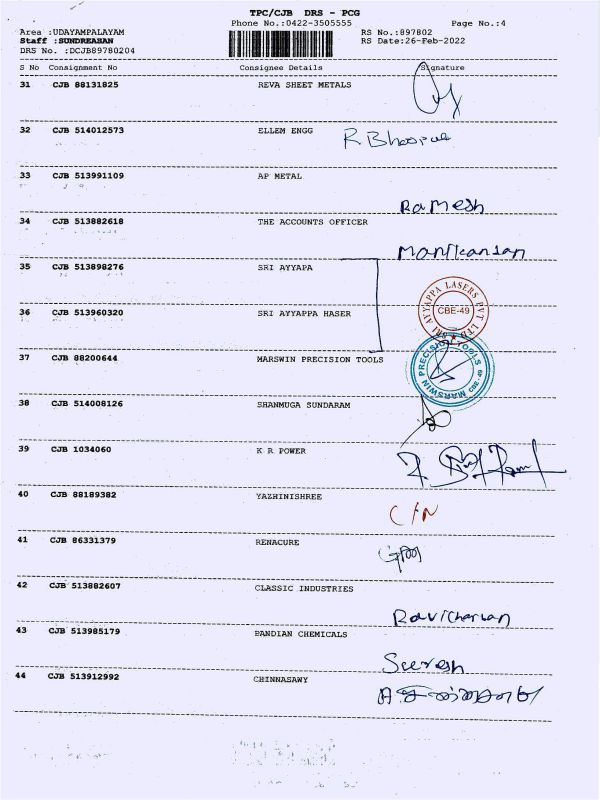 TPC/CJB DRS - PCG
Phone No.:0422-3505555 Page No.:4
Area :UDAYAMPALAYAM RS No.:897802
Staff :SUNDREASAN RS Date:26-Feb-2022
DRS No. :DCJB89780204
S No Consignment No Consignee Details Signature
31 CJB 88131825 REVA SHEET METALS
32 CJB 514012573 ELLEM ENGG
33 CJB 513991109 AP METAL
Ramesh
34 CJB 513882618 THE ACCOUNTS OFFICER
Manikandan
35 CJB 513898276 SRI AYYAPA
36 CJB 513960320 SRI AYYAPPA HASER
SRI AYYAPPA LASERS PVT LTD
CBE-49
37 CJB 88200644 MARSWIN PRECISION TOOLS
MARSWIN PRECISION TOOLS CBE-49
38 CJB 514008126 SHANMUGA SUNDARAM
39 CJB 1034060 K R POWER
40 CJB 88189382 YAZHINISHREE
C/N
41 CJB 86331379 RENACURE
42 CJB 513882607 CLASSIC INDUSTRIES
43 CJB 513985179 BANDIAN CHEMICALS
Suresh
44 CJB 513912992 CHINNASAWY